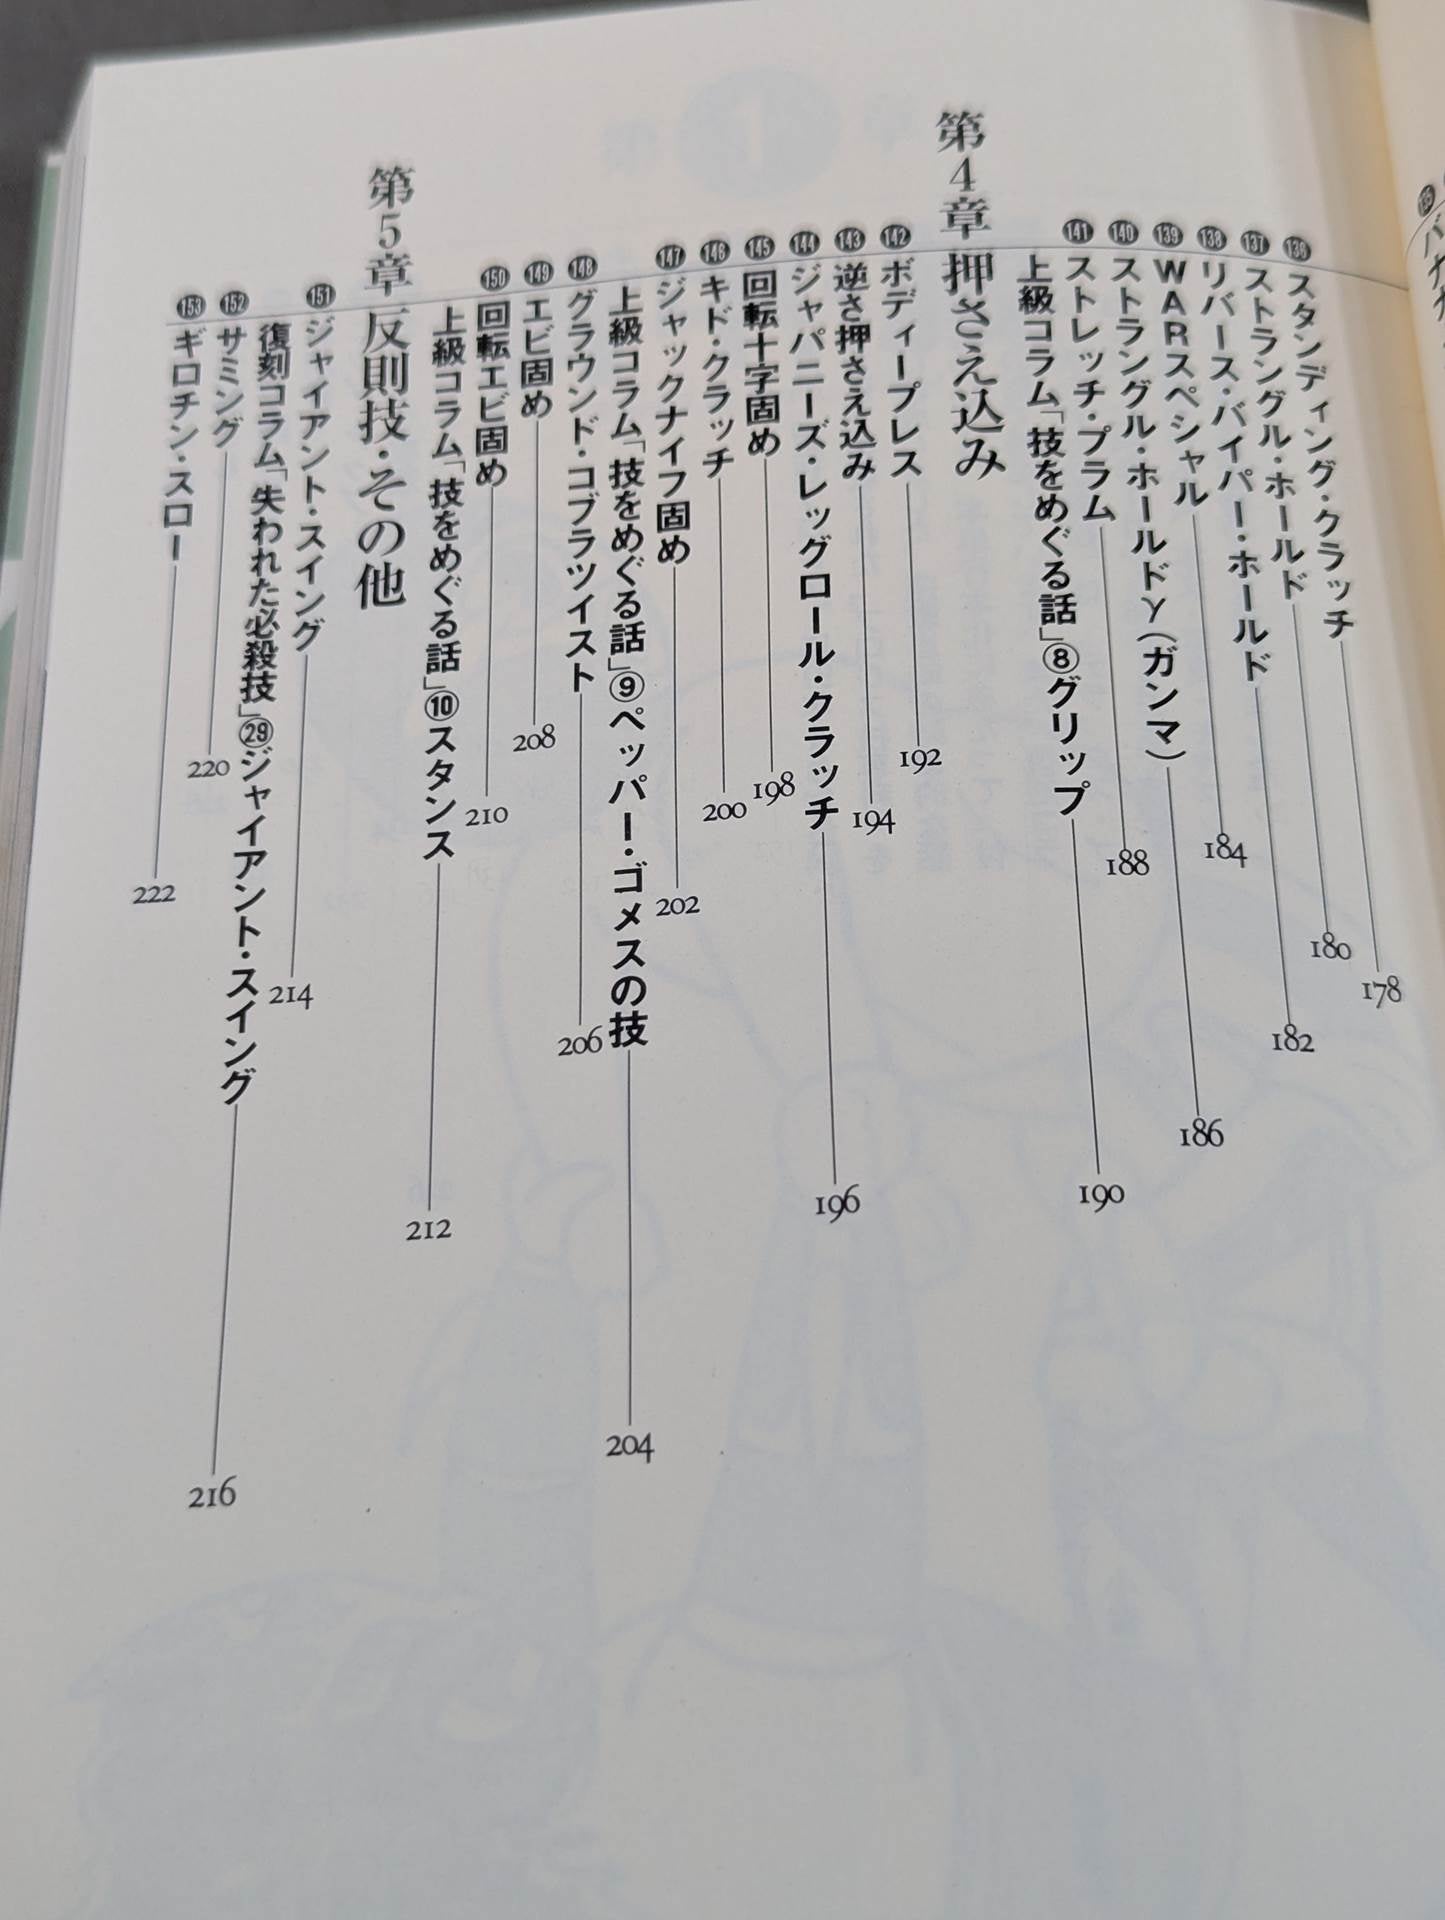 136 スタンディング・クラッチ 178
137 ストラングル・ホールド 180
138 リバース・バイパー・ホールド 182
139 WARスペシャル 184
140 ストラングル・ホールドγ(ガンマ) 186
141 ストレッチ・プラム 188
上級コラム「技をめぐる話」⑧グリップ 190
第4章 押さえ込み
142 ボディープレス 192
143 逆さ押さえ込み 194
144 ジャパニーズ・レッグロール・クラッチ 196
145 回転十字固め 198
146 キド・クラッチ 200
147 ジャックナイフ固め 202
上級コラム「技をめぐる話」⑨ペッパー・ゴメスの技 204
148 グラウンド・コブラツイスト 206
149 エビ固め 208
150 回転エビ固め 210
上級コラム「技をめぐる話」⑩スタンス 212
第5章 反則技・その他
151 ジャイアント・スイング 214
復刻コラム「失われた必殺技」㉙ジャイアント・スイング 216
152 サミング 220
153 ギロチン・スロー 222